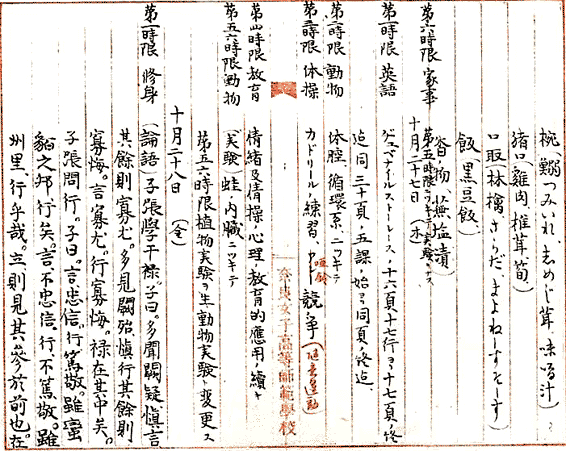 椀、鰯つみいれ、しめじ茸、味噌汁)
猪口(雞肉、椎茸、筍、)
口取(林檎、さらだ、まよねーずそーす)
飯、黒豆飯、
香物、蕪塩漬
第六時限 家事
第五時限ニ
十月二十七日 (木)
第一時限 英語
十六頁十七行ヨリ十七頁ノ終
迄同三十頁、五課ノ始ヨリ同頁ノ終迄、
第二時限 動物
体腔、循環系、ニツキテ
第三時限 体操
カドリール練習、 競争
第四時限 教育
情緒及情操ノ心理、教育的應用ノ續キ
第五六時限 動物
(実験)蛙ノ内臓ニツキテ
奈良女子高等師範學校
第五六時限植物実験ヲ動物実験ト変更ス
十月二十八日 (金)
第一時限 修身
(論語)子張學干禄。子曰。多聞闕疑慎言
其餘則寡尤。多見闕殆慎行其餘則
寡悔。言寡尤。行寡悔。禄在其中矣。
子張問行。子曰。言忠信、行篤敬。雖蛮
貊之邦行矣。言不忠信、行不篤敬。雖
州里、行乎哉。立則見其参於前也。在